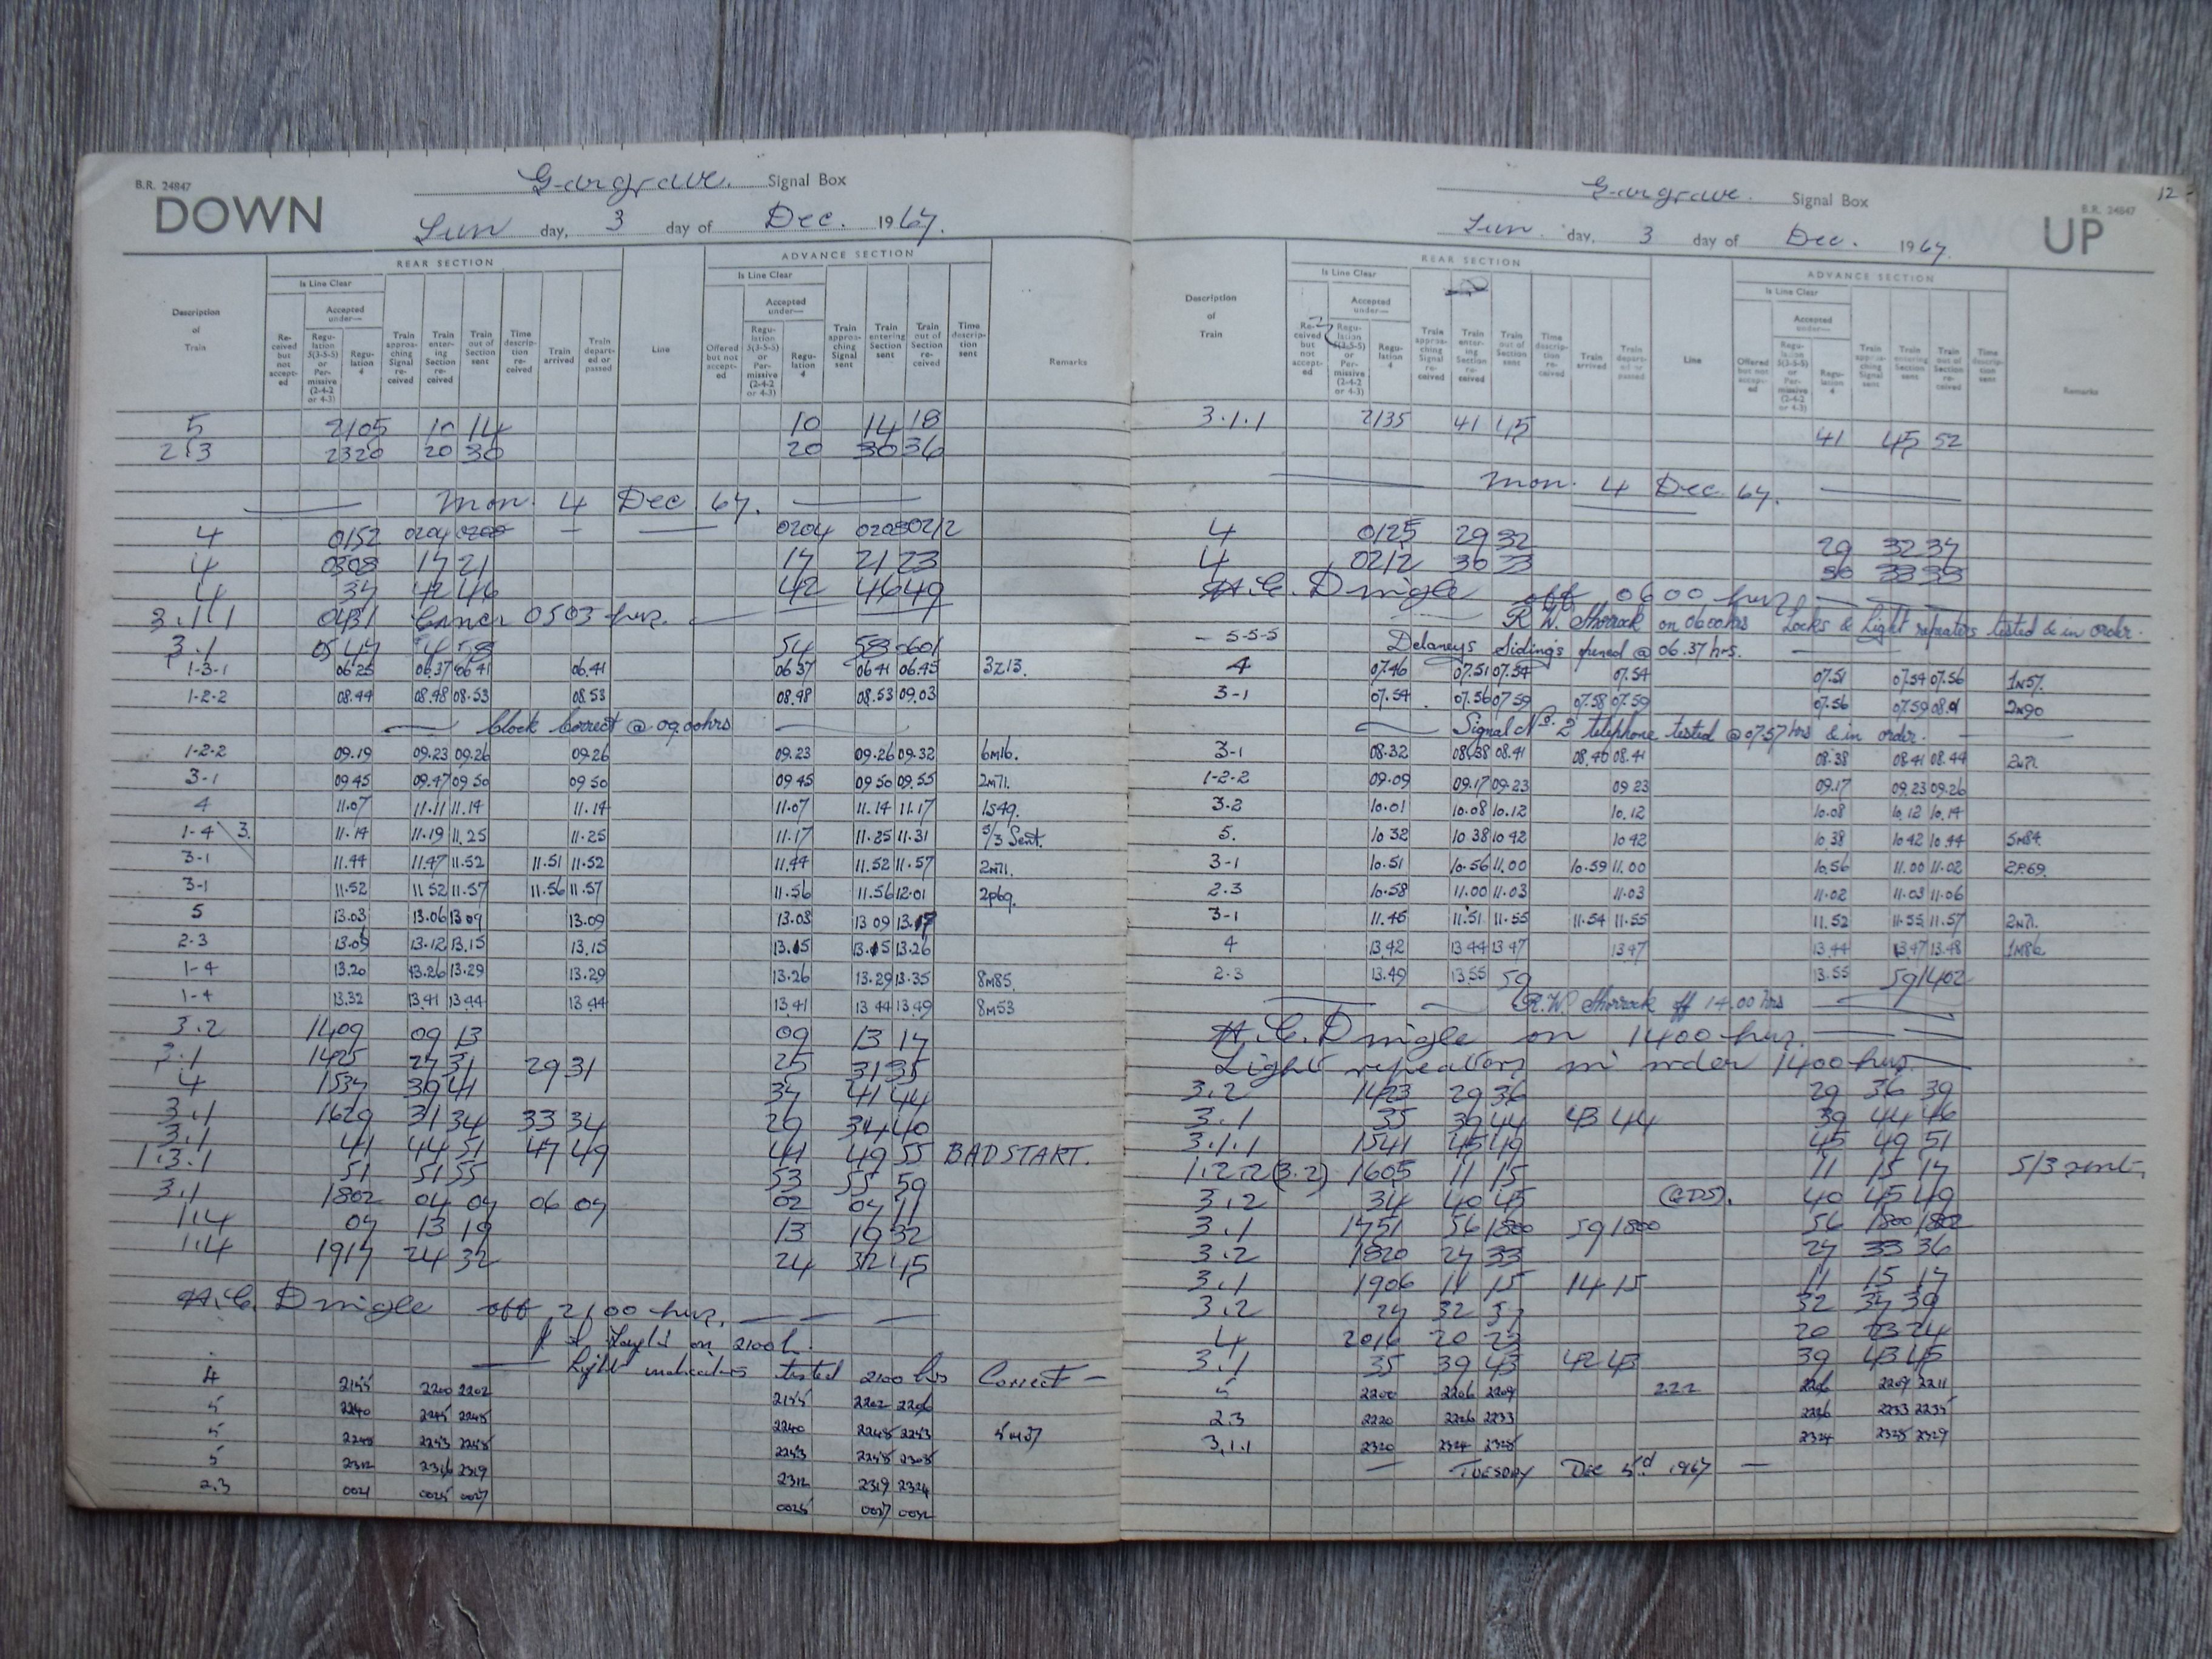 B.R. 24847
DOWN
Gargrave. Signal Box
Sun day, 3 day of Dec. 1967.
REAR SECTION
ADVANCE SECTION
Is Line Clear
Is Line Clear
Description of Train
Received but not accepted
Accepted under—
Regulation 5(3-5-5) or Permissive (2-4-2 or 4-3)
Regulation 4
Train approaching Signal received
Train entering Section received
Train out of Section sent
Time description received
Train arrived
Train departed or passed
Line
Offered but not accepted
Accepted under—
Regulation 5(3-5-5) or Permissive (2-4-2 or 4-3)
Regulation 4
Train approaching Signal sent
Train entering Section sent
Train out of Section received
Time description sent
Remarks
5 2105 10 14 10 14 18
2.3 2320 20 30 20 30 36
Mon. 4 Dec 67.
4 0152 0204 0208 — 0204 0208 0212
4 0308 17 21 17 21 23
4 37 42 46 42 46 49
3.1.1 0431 Cancr 0503 hrs.
3.1 0547 54 58 54 58 0601
1-3-1 06.25 06.37 06.41 06.41 06.37 06.41 06.45 3Z13.
1-2-2 08.44 08.48 08.53 08.53 08.48 08.53 09.03
Clock Correct @ 09.00hrs
1-2-2 09.19 09.23 09.26 09.26 09.23 09.26 09.32 6M16.
3-1 09.45 09.47 09.50 09.50 09.45 09.50 09.55 2N71.
4 11.07 11.11 11.14 11.14 11.07 11.14 11.17 1S49.
1-4 3. 11.14 11.19 11.25 11.25 11.17 11.25 11.31 5/3 Sent.
3-1 11.44 11.47 11.52 11.51 11.52 11.44 11.52 11.57 2N71.
3-1 11.52 11.52 11.57 11.56 11.57 11.56 11.56 12.01 2P69.
5 13.03 13.06 13.09 13.09 13.03 13.09 13.17
2.3 13.09 13.12 13.15 13.15 13.15 13.15 13.26
1-4 13.20 13.26 13.29 13.29 13.26 13.29 13.35 8M85.
1-4 13.32 13.41 13.44 13.44 13.41 13.44 13.49 8M53
3.2 1409 09 13 09 13 17
3.1 1425 27 31 29 31 25 31 35
4 1537 39 41 37 41 44
3.1 1629 31 34 33 34 29 34 40
3.1 41 44 51 47 49 41 49 55 BAD START.
1.3.1 51 51 55 53 55 59
3.1 1802 04 07 06 07 02 07 11
1.4 07 13 19 13 19 32
1.4 1917 24 32 24 32 45
H.C. Dningle off 2100 hrs.
on 2100h.
Light indicators tested 2100 hrs Correct —
4 2155 2200 2202 2155 2202 2206
5 2240 2245 2248 2240 2248 2253 5M37
5 2248 2253 2258 2253 2258 2308
5 2312 2316 2319 2312 2319 2324
2.3 0021 0025 0027 0025 0027 0032
12 -
B.R. 24847
UP
Gargrave. Signal Box
Sun. day, 3 day of Dec. 1967.
REAR SECTION
ADVANCE SECTION
Is Line Clear
Description of Train
Received but not accepted
Accepted under—
Regulation 5(3-5-5) or Permissive (2-4-2 or 4-3)
Regulation 4
Train approaching Signal received
Train entering Section received
Train out of Section sent
Time description received
Train arrived
Train departed or passed
Line
Offered but not accepted
Accepted under—
Regulation 5(3-5-5) or Permissive (2-4-2 or 4-3)
Regulation 4
Train approaching Signal sent
Train entering Section sent
Train out of Section received
Time description sent
Remarks
3.1.1 2135 41 45 41 45 52
Mon. 4 Dec 67.
4 0125 29 32 29 32 37
4 0212 30 33 30 33 38
H.C. Dningle off 0600 hrs.
R.W. Shorrock on 06.00hrs Locks & Light repeaters tested & in order.
- 5-5-5 Delaneys Sidings opened @ 06.37 hrs.
4 07.46 07.51 07.54 07.54 07.51 07.54 07.56 1N57.
3-1 07.54 07.56 07.59 07.58 07.59 07.56 07.59 08.01 2N90
Signal No. 2 telephone tested @ 07.57 hrs & in order.
3-1 08.32 08.38 08.41 08.40 08.41 08.38 08.41 08.44 2N71.
1-2-2 09.09 09.17 09.23 09.23 09.17 09.23 09.26
3.2 10.01 10.08 10.12 10.12 10.08 10.12 10.14
5. 10.32 10.38 10.42 10.42 10.38 10.42 10.44 5M84.
3-1 10.51 10.56 11.00 10.59 11.00 10.56 11.00 11.02 2P69.
2.3 10.58 11.00 11.03 11.03 11.02 11.03 11.06
3-1 11.45 11.51 11.55 11.54 11.55 11.52 11.55 11.57 2N71.
4 13.42 13.44 13.47 13.47 13.44 13.47 13.48 1M86.
2.3 13.49 13.55 59 13.55 59 1402
R.W. Shorrock off 14.00 hrs
H.C. Dningle on 1400 hrs.
Light repeaters in order 1400 hrs.
3.2 1423 29 36 29 36 39
3.1 35 39 44 43 44 39 44 46
3.1.1 1541 45 49 45 49 51
1.2.2 (3.2) 1605 11 15 11 15 17 5/3 sent.
3.2 34 40 45 (GDS). 40 45 49
3.1 1751 56 1800 59 1800 56 1800 1802
3.2 1820 27 33 27 33 36
3.1 1906 11 15 14 15 11 15 17
3.2 27 32 37 32 37 39
4 2016 20 23 20 23 24
3.1 35 39 43 42 43 39 43 45
5 2200 2206 2209 2.2.2 2206 2209 2211
2.3 2220 2226 2233 2226 2233 2235
3.1.1 2320 2324 2328 2324 2328 2329
— TUESDAY DEC 5d 1967 —